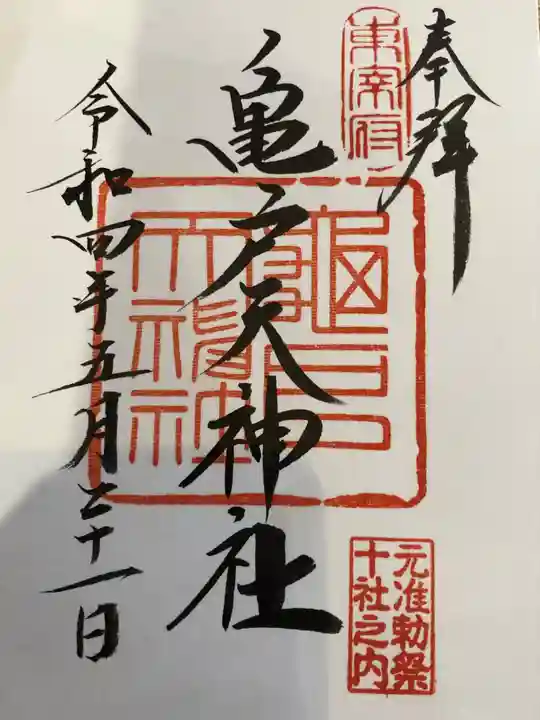 奉拝
東宰府
亀戸天神社
元准勅祭
十社之内
令和四年五月二十一日